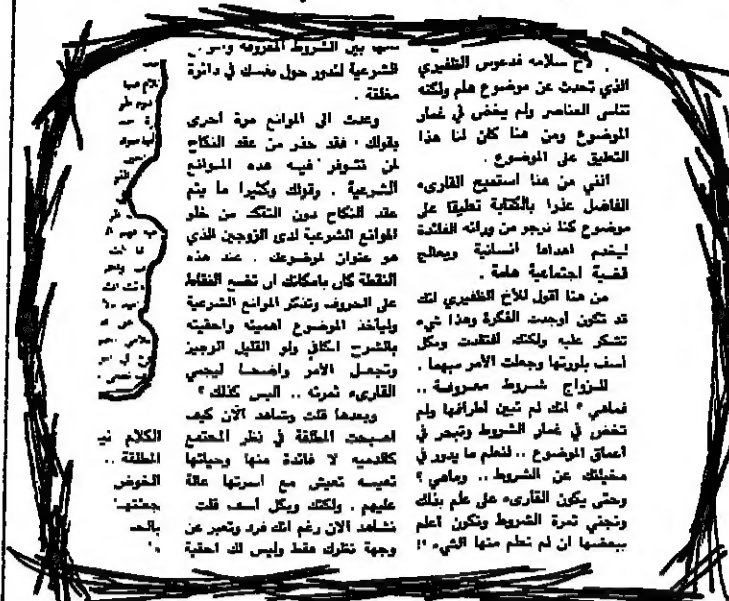 . لاخ سلامه فدعوس الظفيري
الذي تحدث عن موضوع هام ولكنه
تناسى العناصر ولم يخض في غمار
الموضوع ومن هنا كان لنا هذا
التعليق على الموضوع .
انني من هنا استميح القارىء
الفاضل عذرا بالكتابة تعليقا على
موضوع كنا نرجو من ورائه الفائدة
ليخدم اهدافا انسانية ويعالج
قضية اجتماعية هامة .
من هنا اقول للأخ الظفيري انك
قد تكون أوجدت الفكرة وهذا شيء
تشكر عليه ولكنك افتقدت وبكل
أسف بلورتها وجعلت الأمر مبهما .
للزواج شروط معروفة ..
فماهي ؟ انك لم تبين اطرافها ولم
تخض في غمار الشروط وتبحر في
أعماق الموضوع .. لنعلم ما يدور في
مخيلتك عن الشروط .. وماهي ؟
وحتى يكون القارىء على علم بذلك
ونجني ثمرة الشروط ونكون اعلم
ببعضها ان لم نعلم منها الشيء !؟
بين الشروط المعروفة
الشرعية لتدور حول نفسك في دائرة
مغلقة .
وعدت الى الموانع مرة أخرى
بقولك ، فقد حذر من عقد النكاح
لمن تتوفر فيه هذه الموانع
الشرعية . وقولك وكثيرا ما يتم
عقد النكاح دون التأكد من خلو
الموانع الشرعية لدى الزوجين الذي
هو عنوان لموضوعك . عند هذه
النقطة كان بامكانك ان تضع النقاط
على الحروف وتذكر الموانع الشرعية
وليأخذ الموضوع اهميته واحقيته
بالشرح الكافي ولو القليل الوجيز
وتجعل الأمر واضحا ليجني
القارىء ثمرته .. اليس كذلك ؟
وبعدها قلت ونشاهد الآن كيف
اصبحت المطلقة في نظر المجتمع
كالدميه لا فائدة منها وحياتها
تعيسه تعيش مع اسرتها عالة
عليهم . ولكنك وبكل أسف قلت
نشاهد الآن رغم انك فرد وتعبر عن
وجهة نظرك فقط وليس لك احقية
الكلام
المطلقة ..
الخوض
جعلتها